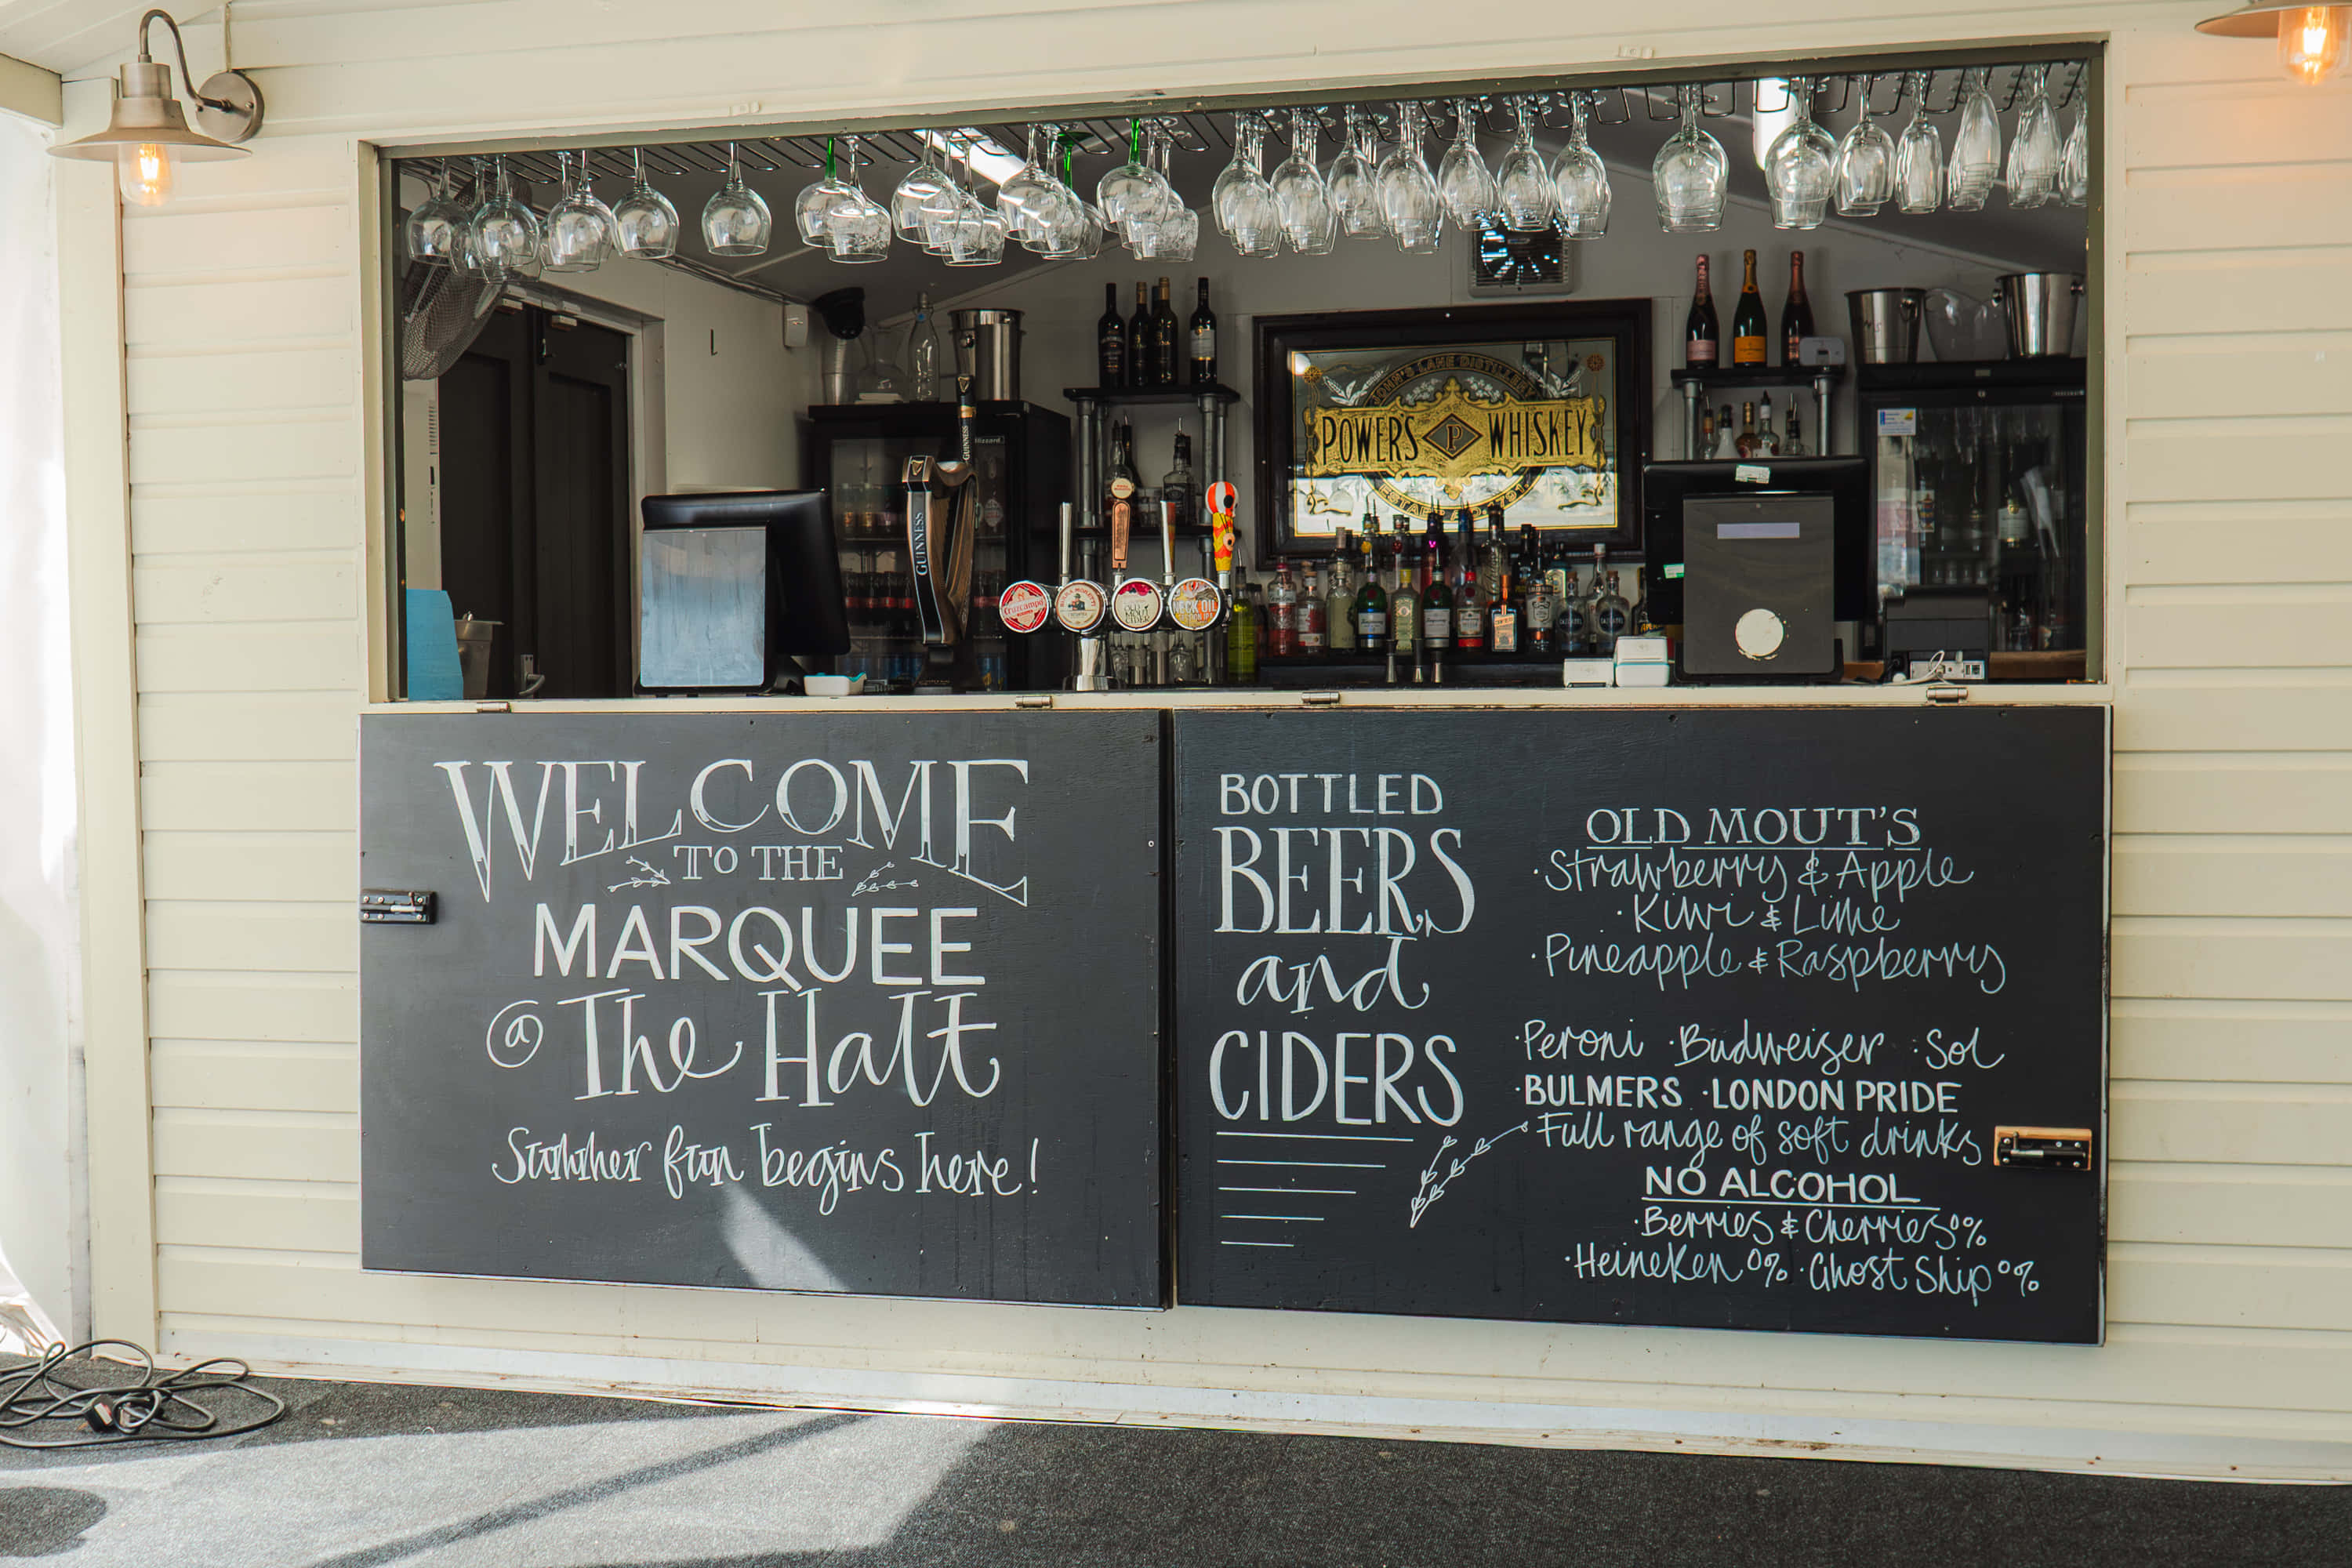 JOHN'S LANE DISTILLERY
POWER'S P WHISKEY
ESTAB A.D. 1791
GUINNESS
GUINNESS
Cruzcampo
BIRRA MORETTI
OLD MOUT CIDER
NECK OIL
WELCOME
TO THE
MARQUEE
@ The Halt
Summer fun begins here!
BOTTLED
BEERS
and
CIDERS
OLD MOUT'S
·Strawberry & Apple
·Kiwi & Lime
·Pineapple & Raspberry
·Peroni ·Budweiser ·Sol
·BULMERS ·LONDON PRIDE
·Full range of soft drinks
NO ALCOHOL
·Berries & Cherries 0%
·Heineken 0% ·Ghost Ship 0%